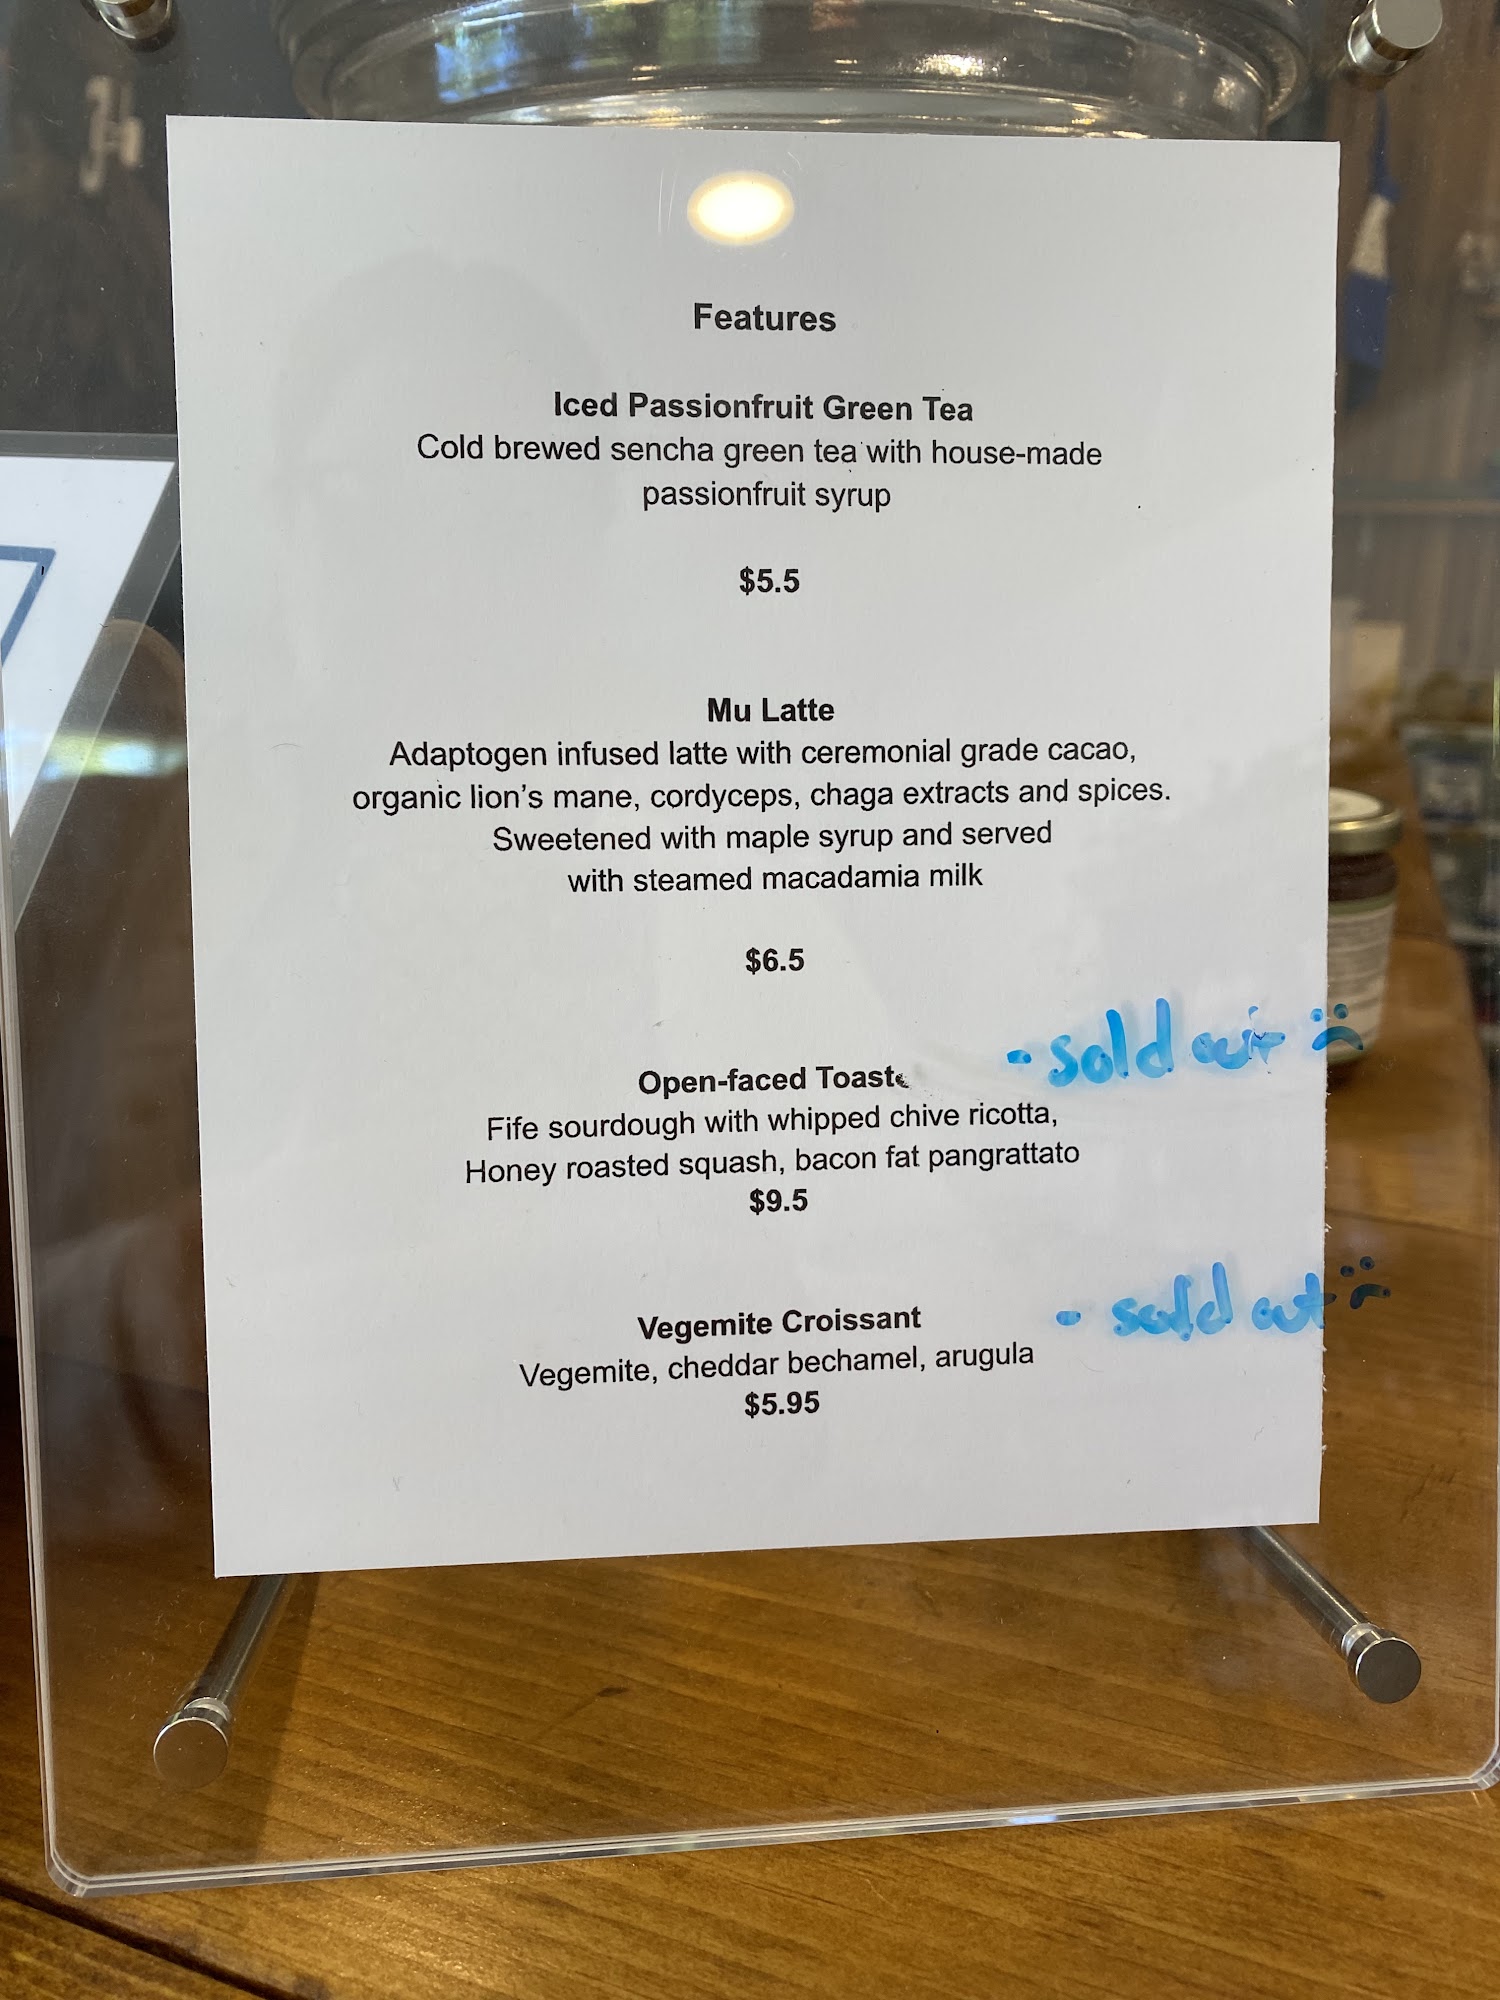 Features
Iced Passionfruit Green Tea
Cold brewed sencha green tea with house-made
passionfruit syrup
$5.5
Mu Latte
Adaptogen infused latte with ceremonial grade cacao,
organic lion's mane, cordyceps, chaga extracts and spices.
Sweetened with maple syrup and served
with steamed macadamia milk
$6.5
- sold out :(
Open-faced Toast
Fife sourdough with whipped chive ricotta,
Honey roasted squash, bacon fat pangrattato
$9.5
Vegemite Croissant - sold out :(
Vegemite, cheddar bechamel, arugula
$5.95